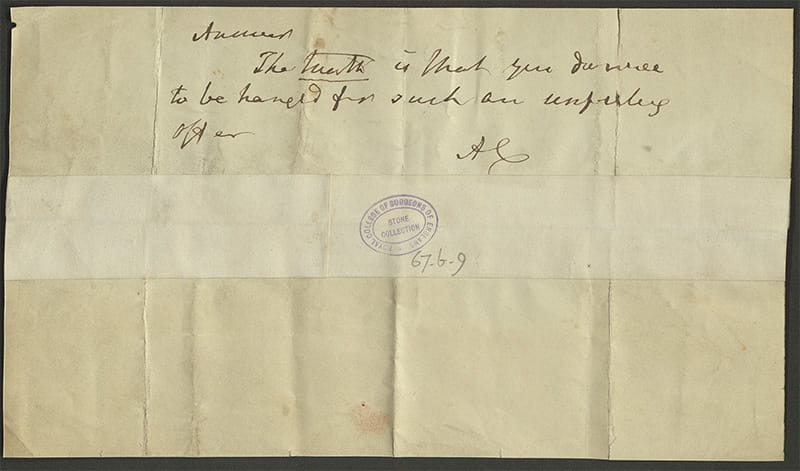 Answer
The truth is that you deserve
to be hanged for such an unfeeling
offer
AC
ROYAL COLLEGE OF SURGEONS OF ENGLAND
STONE
COLLECTION
67-b-9